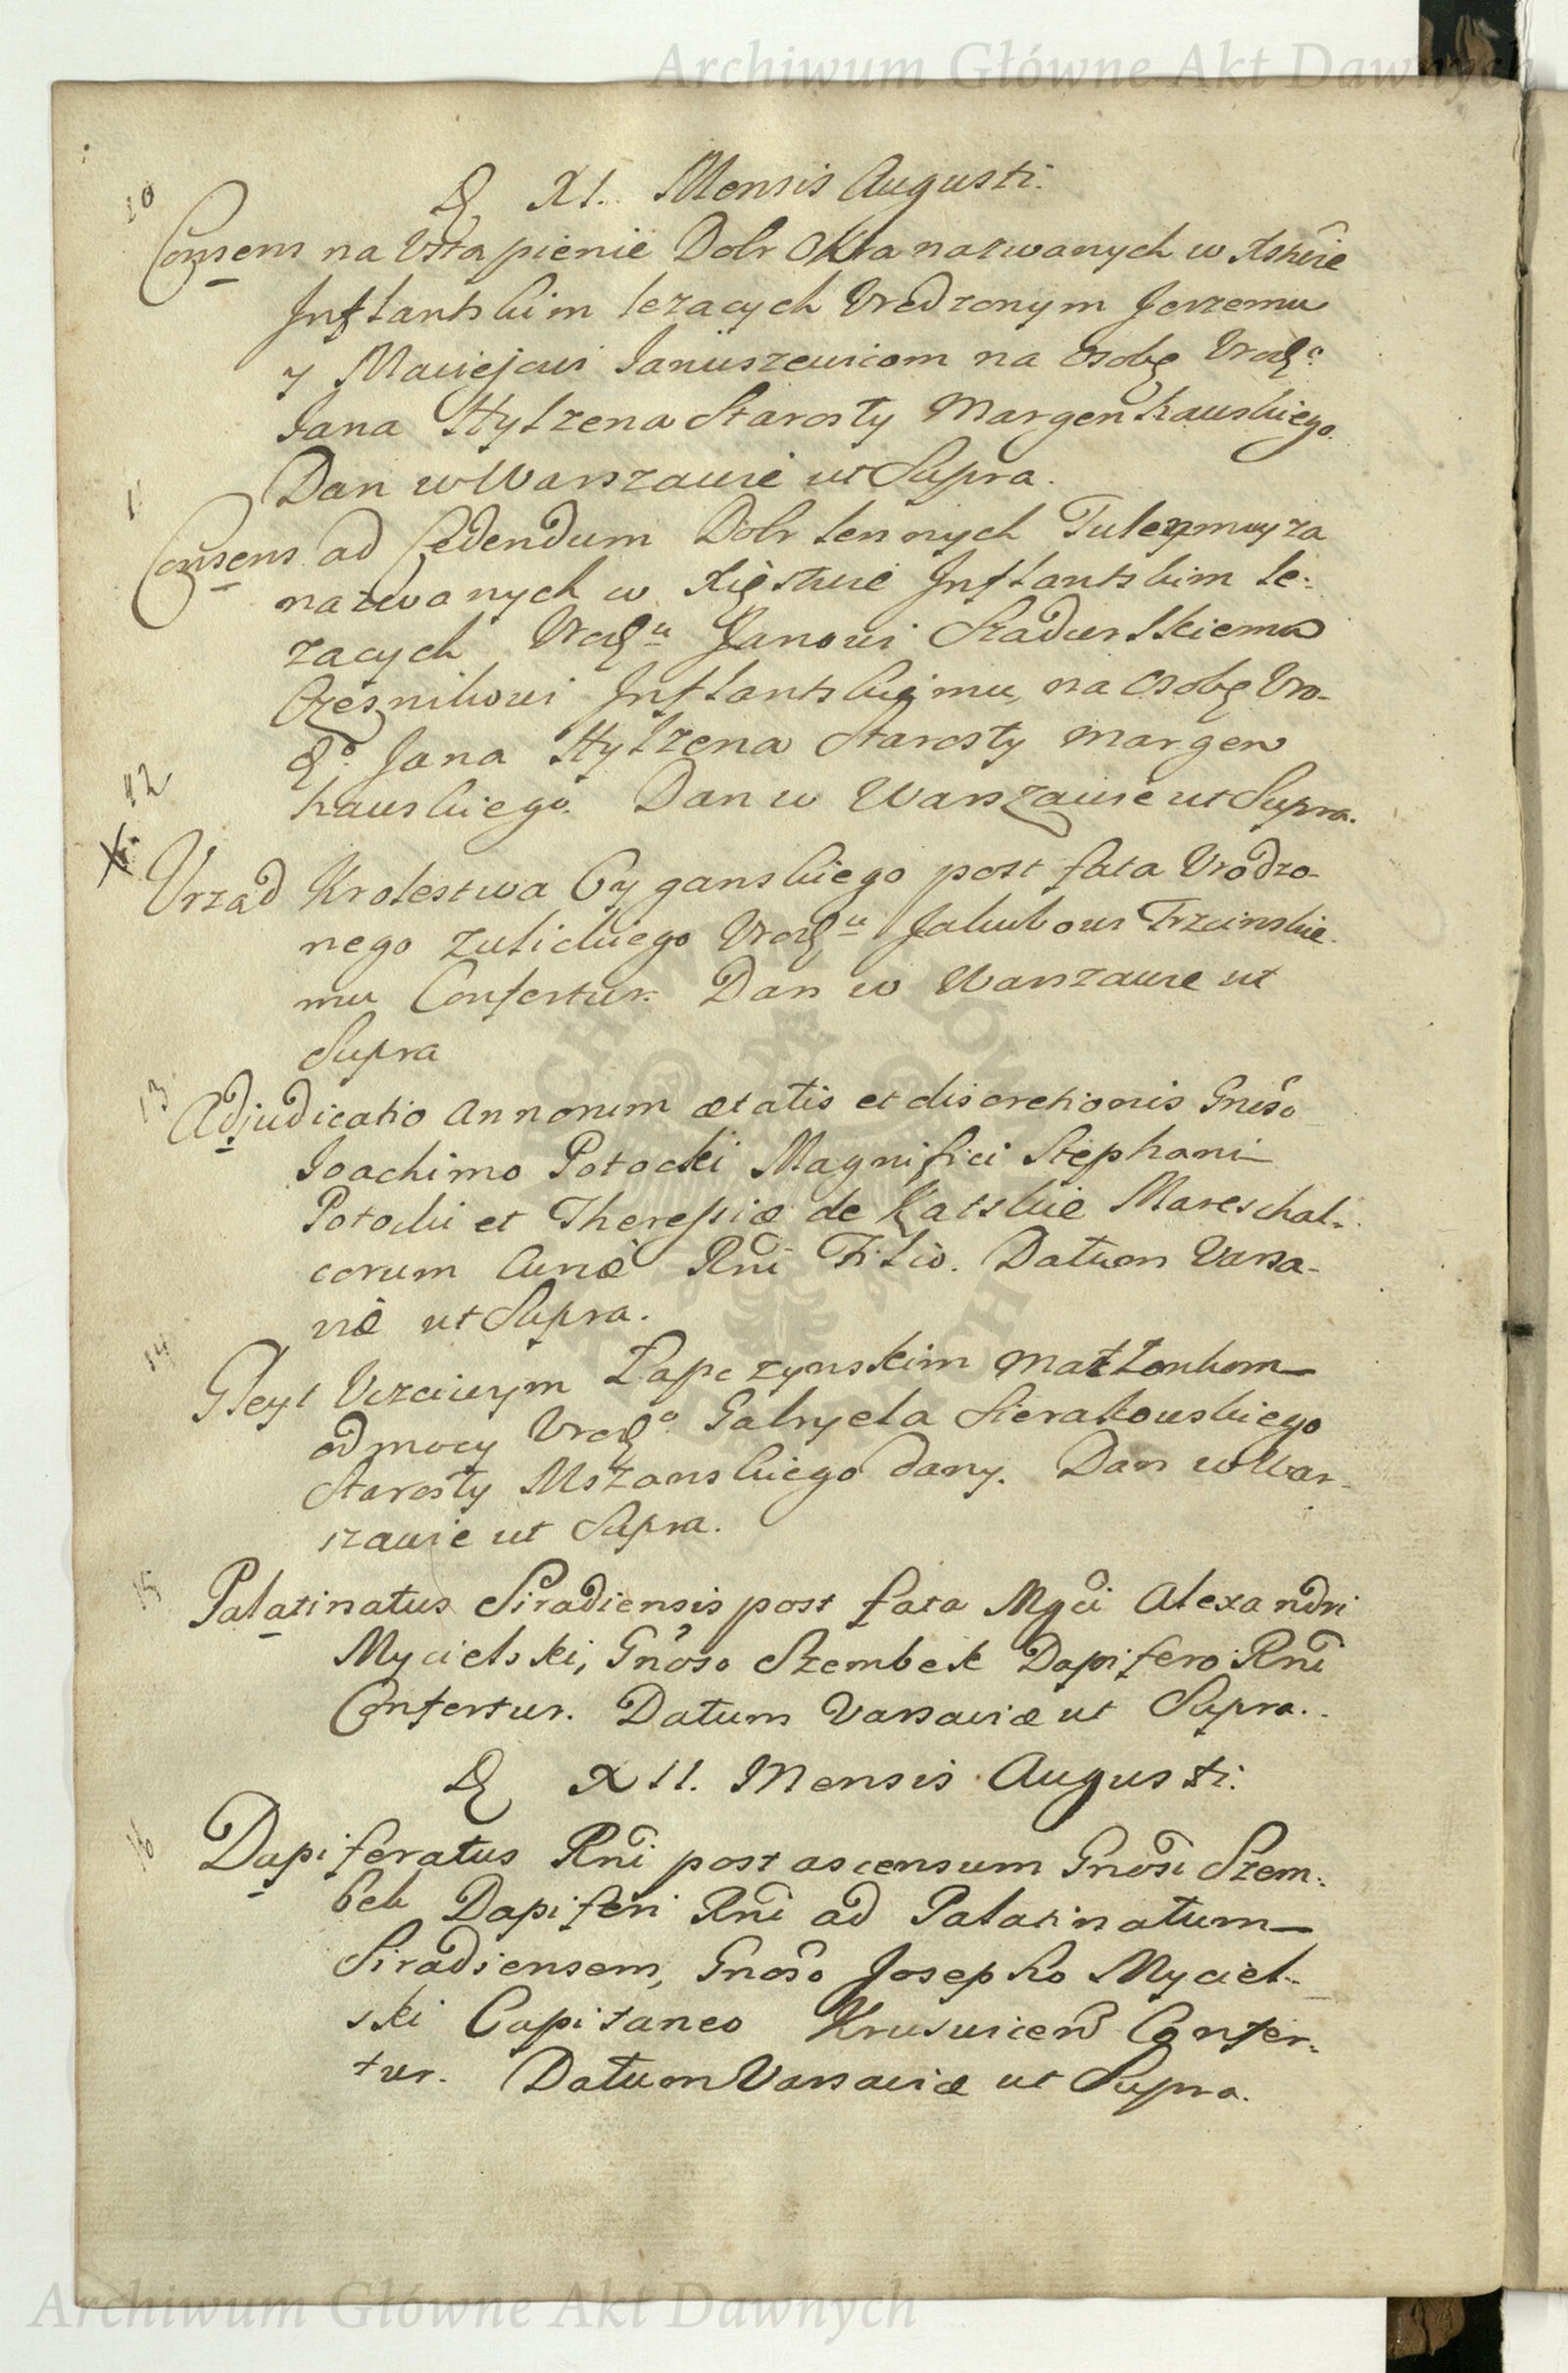 Archiwum Główne Akt Dawnych
D. XI. Mensis Augusti.
10
Consens na Vstąpienie Dobr Okra nazwanych w Xstwie
Inflantskim lezacych Vrodzonym Jerzemu
y Maciejowi Januszewicom na osobę Vrodzo
Jana Hylzena Starosty Margenhauskiego.
Dan w Warszawie ut Supra.
11
Consens ad Cedendum Dobr lennych Tulexmuyza
nazwanych w Xięstwie Inflantskim le:
zacych Vrodzu Janowi Szadurskiemu
Cześnikowi Inflantskiemu, na osobę Vro-
dzo Jana Hylzena Starosty Margen
hauskiego. Dan w Warszawie ut Supra.
12
X.
Vrząd Krolestwa Cyganskiego post fata Vrodzo-
nego Zulickiego Vrodzu Jakubowi Trzcinskie-
mu Confertur. Dan w Warszawie ut
Supra
13
Adjudicatio Annorum ætatis et discretionis Gneso
Joachimo Potocki Magnifici Stephani
Potocki et Theressiæ de Kątskie Mareschal-
corum Curiæ Rni Filio. Datum Varsa-
viæ ut Supra.
14
Gleyt Vczciwym Łapczynskim Małżonkom
od mocy Vrodzo Gabryela Sierakowskiego
Starosty Mszanskiego dany. Dan w War-
szawie ut Supra.
15
Palatinatus Siradiensis post fata Mgci Alexandri
Mycielski, Gnoso Szembek Dapifero Rni
Confertur. Datum Varsaviæ ut Supra.
D. XII. Mensis Augusti.
16
Dapiferatus Rni post ascensum Gnosi Szem:
bek Dapiferi Rni ad Palatinatum
Siradiensem, Gnoso Josepho Myciel-
ski Capitaneo Krusvicen Confer:
tur. Datum Varsaviæ ut Supra.
Archiwum Główne Akt Dawnych